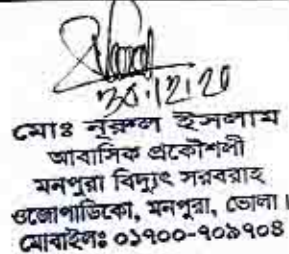 ৩০.১২.২০
মোঃ নূরুল ইসলাম
আবাসিক প্রকৌশলী
মনপুরা বিদ্যুৎ সরবরাহ
ওজোপাডিকো, মনপুরা, ভোলা।
মোবাইলঃ ০১৭০০-৭০৯৭০৪